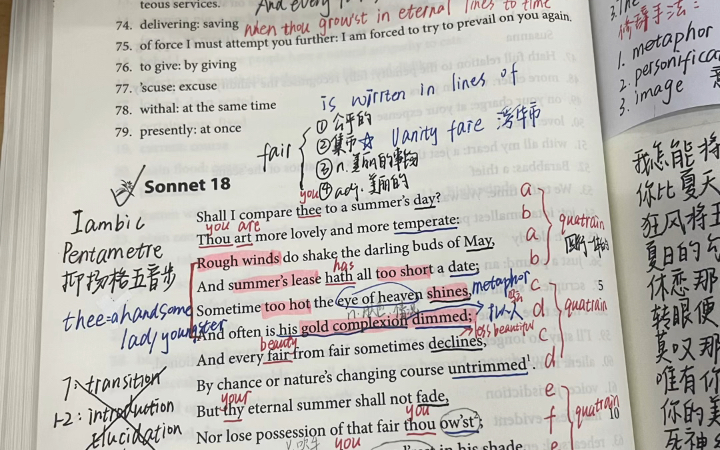 teous services.
And every
74. delivering: saving when thou grow'st in eternal lines to time
75. of force I must attempt you further: I am forced to try to prevail on you again.
76. to give: by giving
77. 'scuse: excuse
78. withal: at the same time
79. presently: at once
is wirrten in lines of
fair
① 公平的
② 集市 ☆ Vanity faire 浮华市
③ n. 美丽的事物
④ adj. 美丽的
修辞手法:
1. metaphor
2. personifica
3. image
Sonnet 18
Iambic
Pentametre
抑扬格五音步
thee=a handsome
lad/youngster
7: transition
1-2: introduction
elucidation
you
Shall I compare thee to a summer's day? a
you are
Thou art more lovely and more temperate: b
Rough winds do shake the darling buds of May, a
has
And summer's lease hath all too short a date; b
quatrain
Sometime too hot the eye of heaven shines, metaphor c 5
And often is his gold complexion dimmed; 拟人 d
quatrain
less beautiful
beauty
And every fair from fair sometimes declines, c
By chance or nature's changing course untrimmed¹. d
your
But thy eternal summer shall not fade, e
you
Nor lose possession of that fair thou ow'st², f 10
quatrain
you
in his shade
e
我怎能将
你比夏天
狂风将五
夏日的
休恋那
转眼便
莫叹那
唯有你
你的美
死神